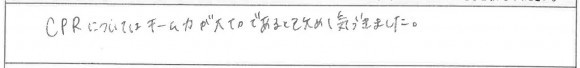 CPRについてはチーム力が大切であると改めて気づきました。